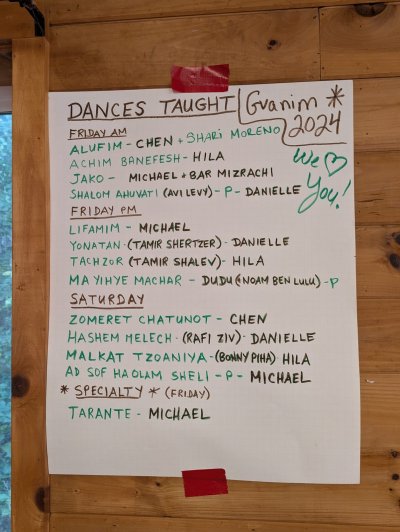 DANCES TAUGHT
Gvanim *
2024
We ♡
You!
FRIDAY AM
ALUFIM - CHEN + SHARI MORENO
ACHIM BANEFESH - HILA
JAKO - MICHAEL + BAR MIZRACHI
SHALOM AHUVATI (AVI LEVY) - P - DANIELLE
FRIDAY PM
LIFAMIM - MICHAEL
YONATAN - (TAMIR SHERTZER) - DANIELLE
TACHZOR - (TAMIR SHALEV) - HILA
MA YIHYE MACHAR - DUDU (+ NOAM BEN LULU) - P
SATURDAY
ZOMERET CHATUNOT - CHEN
HASHEM MELECH - (RAFI ZIV) - DANIELLE
MALKAT TZOANIYA - (BONNY PIHA) HILA
AD SOF HAOLAM SHELI - P - MICHAEL
* SPECIALTY * (FRIDAY)
TARANTE - MICHAEL